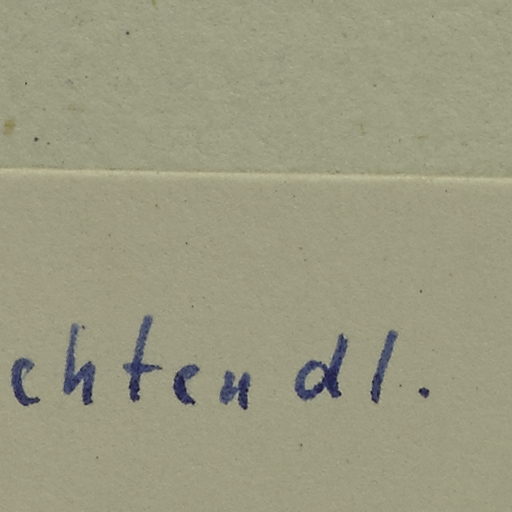 chten dl.